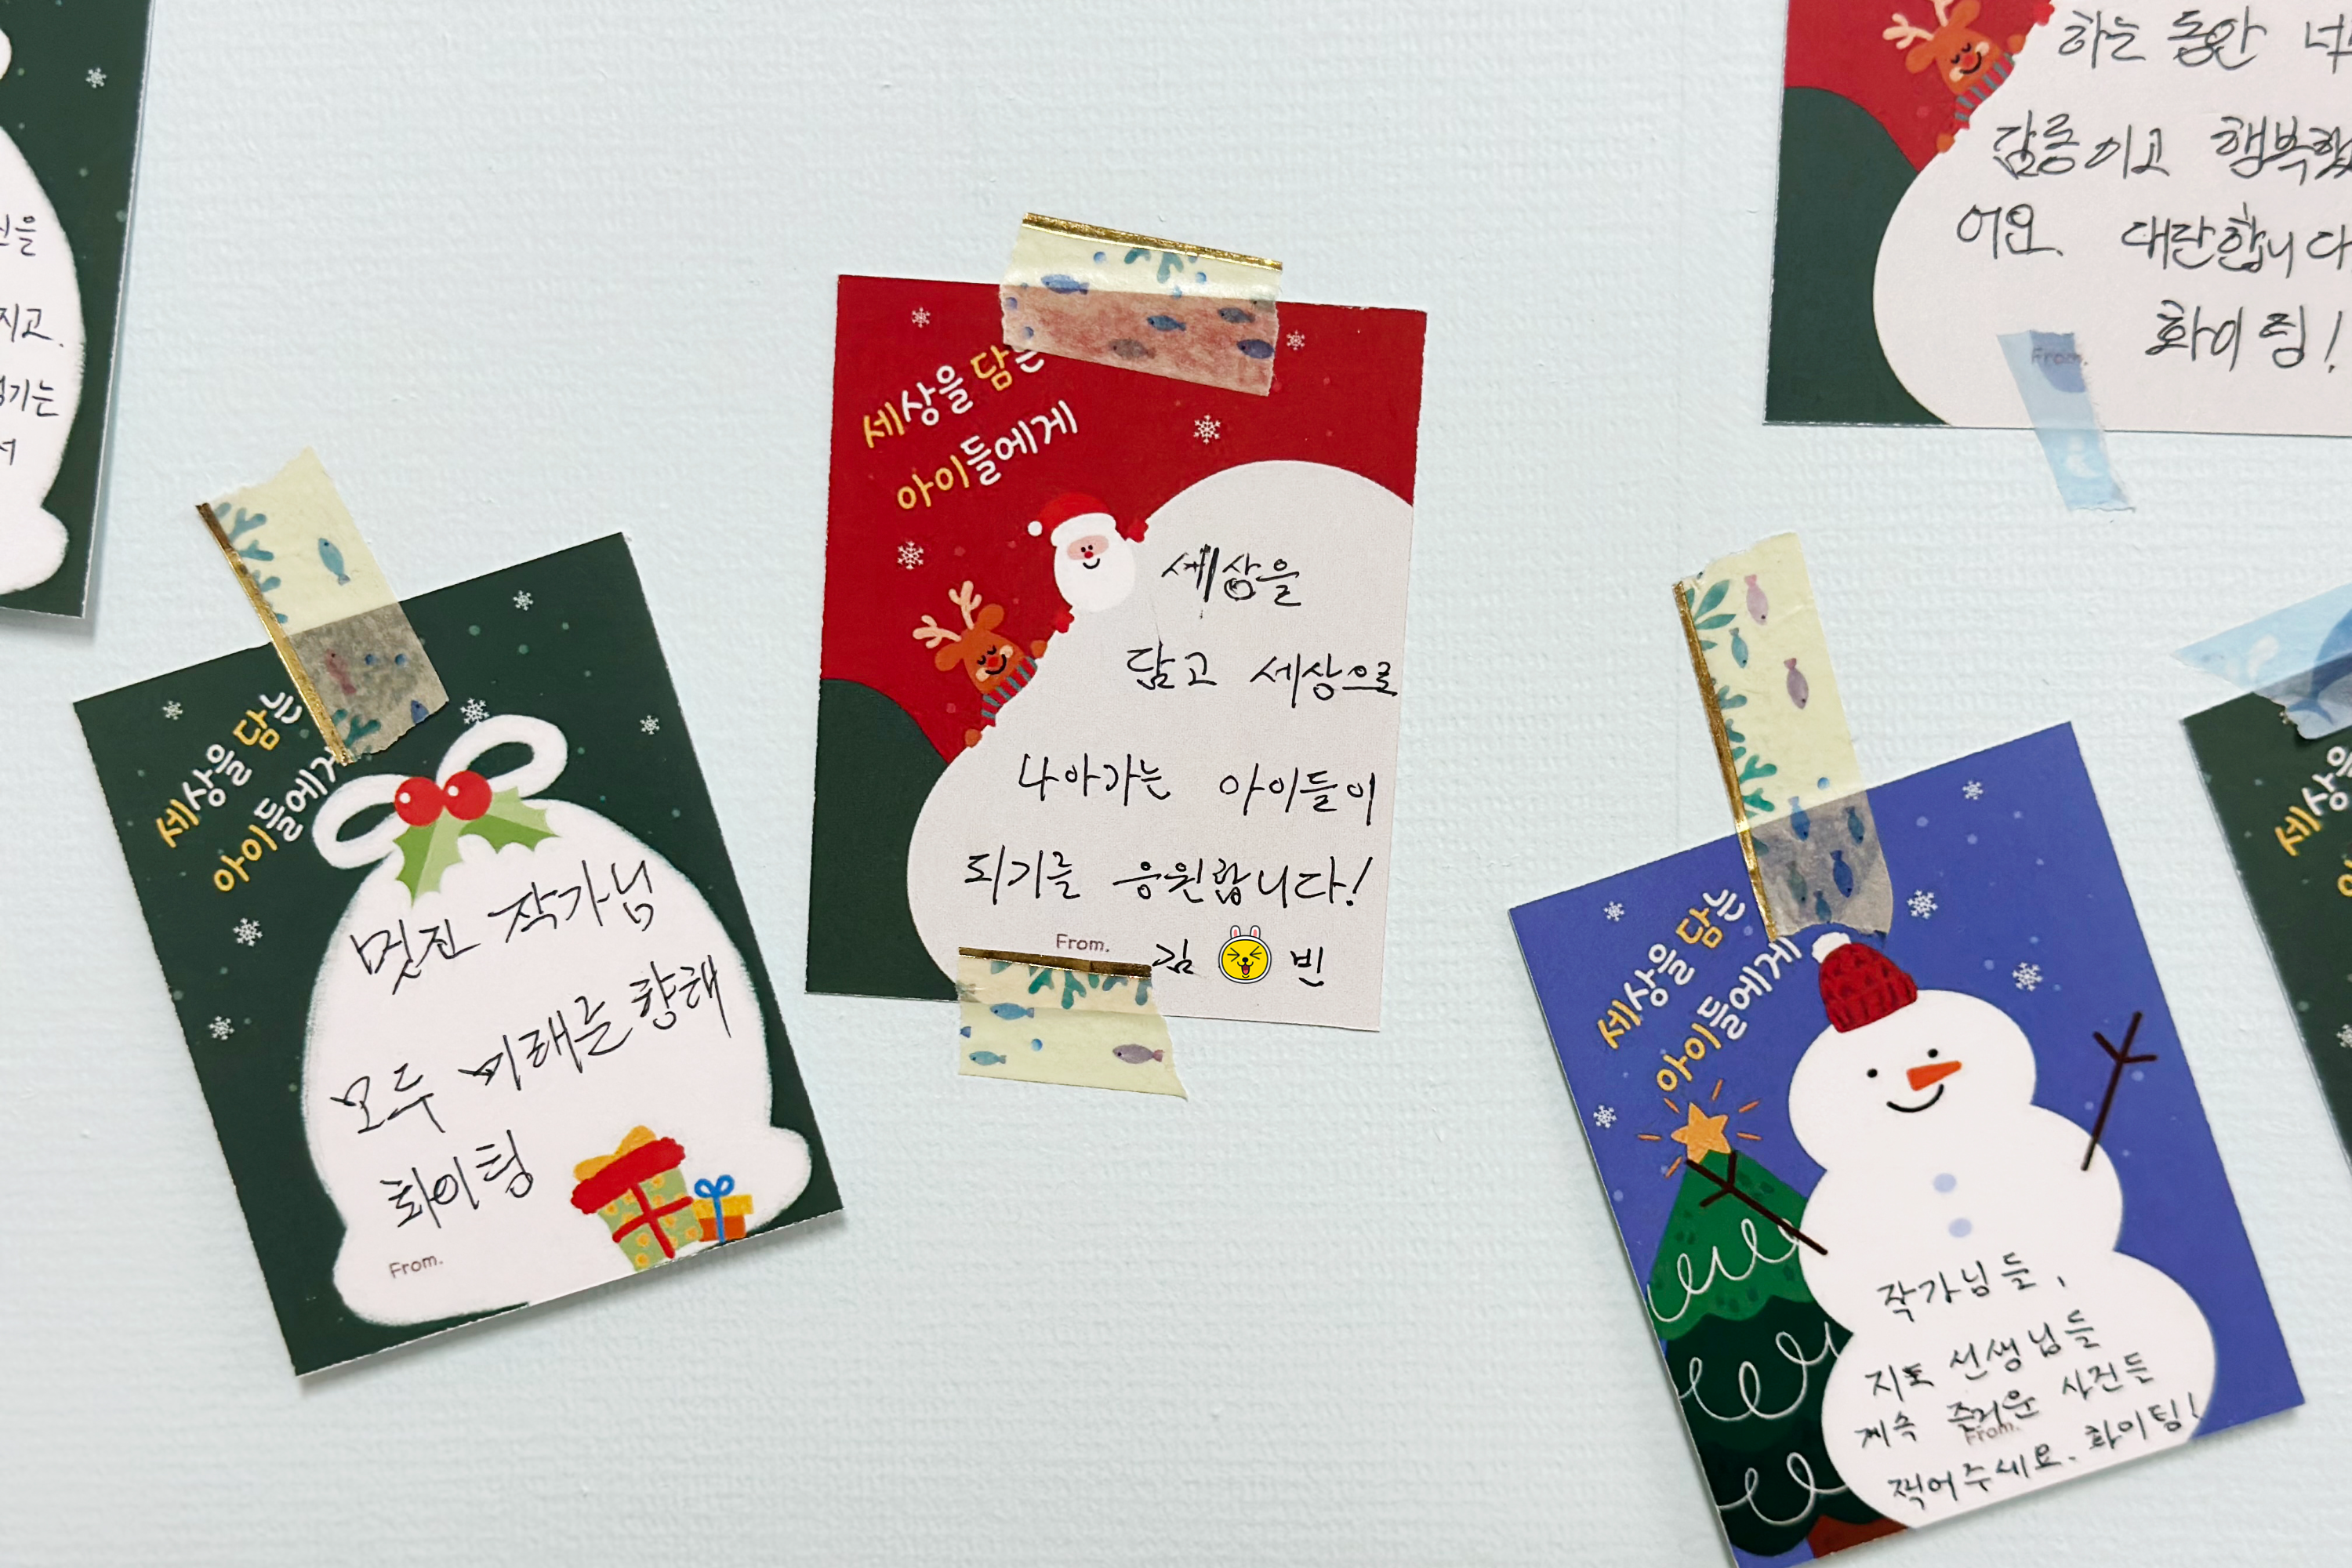 하는 동안
감동이고 행복했
어요. 대단합니다
화이팅!
From.
지고.
세상을 담는
아이들에게
세상을
담고 세상으로
나아가는 아이들이
되기를 응원합니다!
From. 김 빈
세상을 담는
아이들에게
멋진 작가님
모두 미래를 향해
화이팅
From.
세상을 담는
아이들에게
작가님들,
지도 선생님들
계속 즐거운 사진들
From.
찍어주세요. 화이팅!
세상을